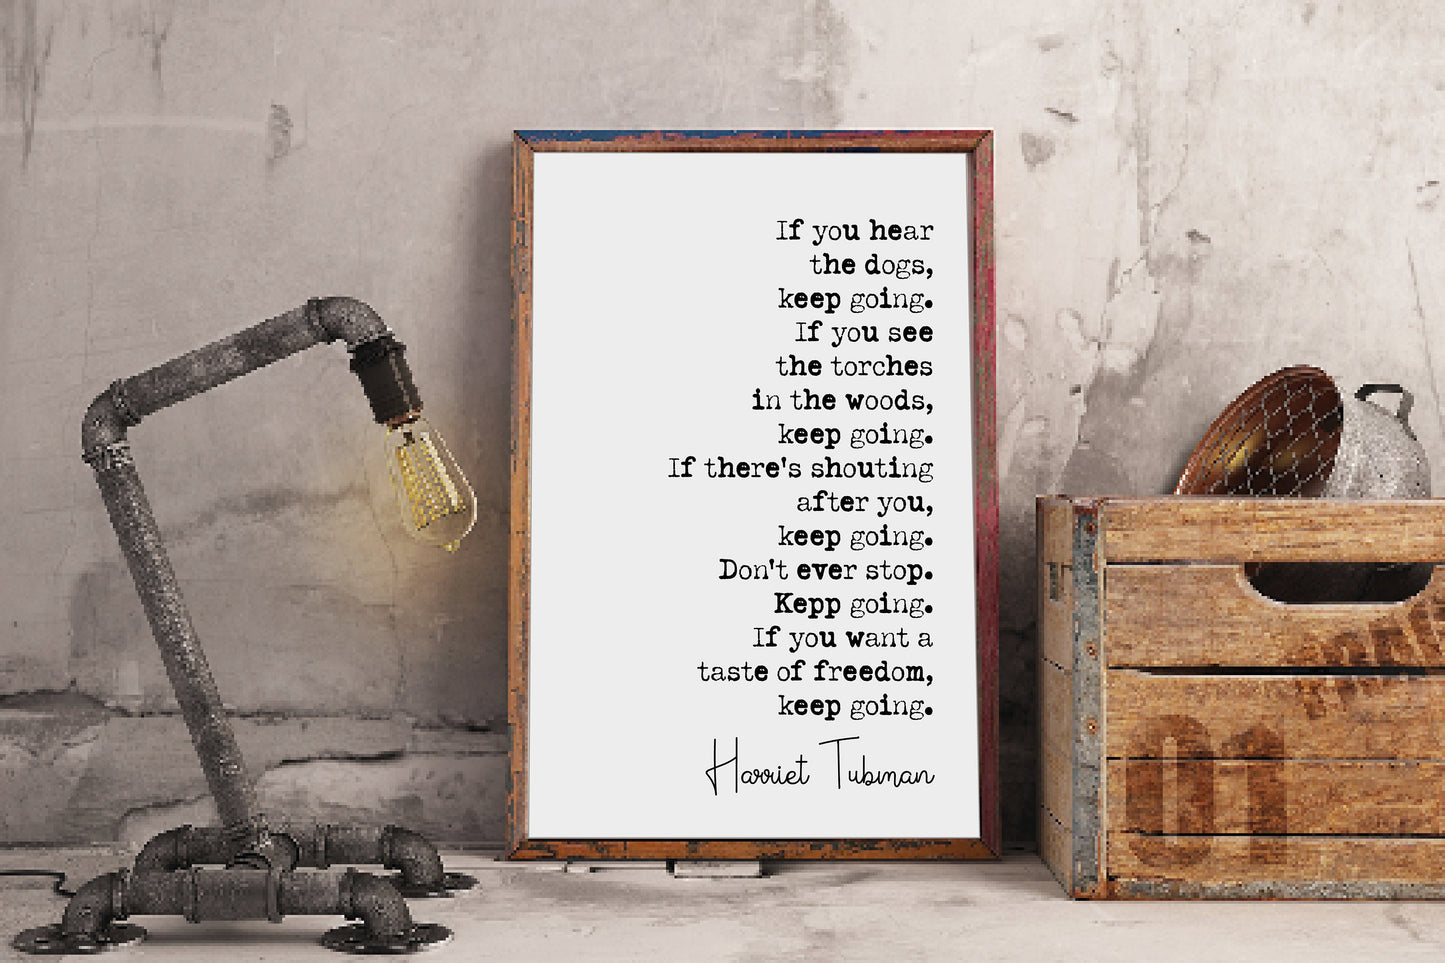 If you hear
the dogs,
keep going.
If you see
the torches
in the woods,
keep going.
If there's shouting
after you,
keep going.
Don't ever stop.
Kepp going.
If you want a
taste of freedom,
keep going.
Harriet Tubman
01